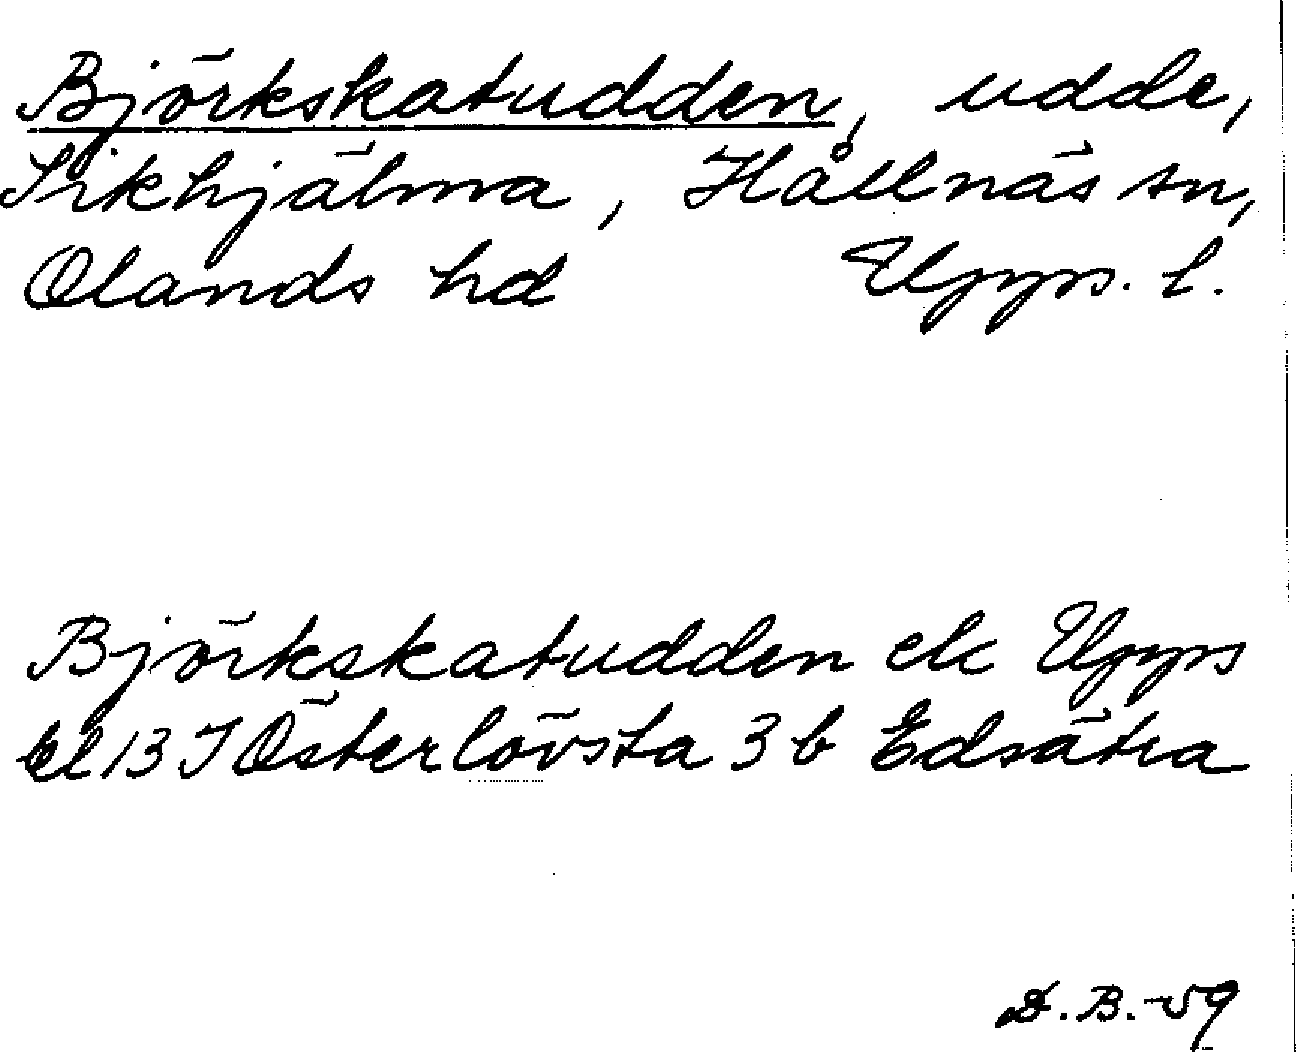 Björkskatudden, udde,
Sikhjälma, Hållnäs sn,
Olands hd Upps. l.
Björkskatudden ek Upps
bl 13 I Österlövsta 3 b Edsätra
D.B.-59